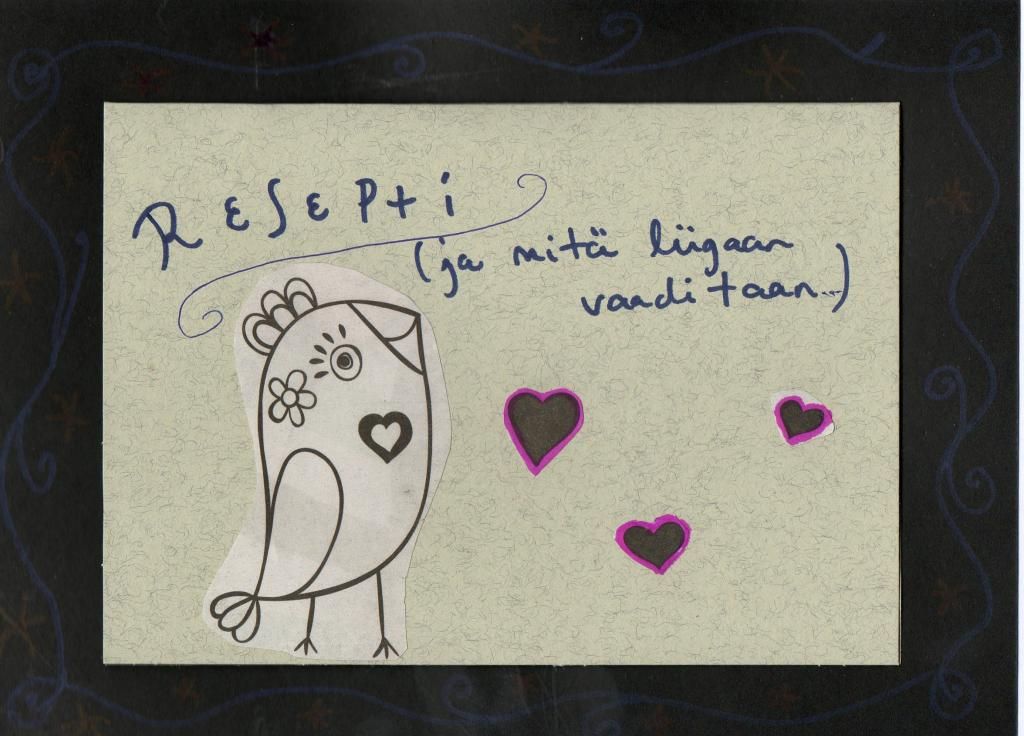 RESEPTI
(ja mitä liigaan
vaaditaan...)